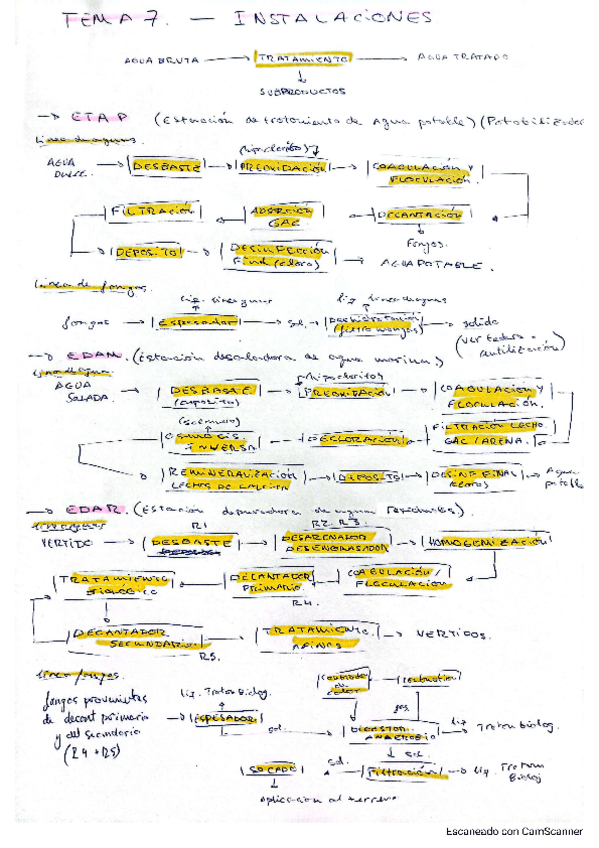 TEMA 7. — INSTALACIONES
AGUA BRUTA → TRATAMIENTO → AGUA TRATADA
SUBPRODUCTOS
→ ETAP (Estación de tratamiento de Agua potable) (Potabilizador
Línea de aguas
(hipoclorito)
AGUA DULCE → DESBASTE → PREOXIDACIÓN → COAGULACIÓN Y FLOCULACIÓN.
FILTRACIÓN ADSORCIÓN GAC DECANTACIÓN
Fangos.
DEPOSITO → DESINFECCIÓN Final (cloro) → AGUA POTABLE.
Línea de fangos.
lig. linea aguas lig linea de aguas
fangos → espesador → sol. → Deshidratación (filtro mangas) → solido
(vertedero o reutilización)
→ EDAM. (Estación desaladora de agua marina)
Línea de agua
hipocloritos
AGUA SALADA. → DESBASTE → PREOXIDACIÓN → COAGULACIÓN Y FLOCULACIÓN.
OSMOSIS INVERSA ← DECLORACIÓN FILTRACIÓN LECHO GAC/ARENA.
REMINERALIZACIÓN LECHOS DE CALCITA → DEPOSITO → DESINF. FINAL (cloro) → Agua potable
→ EDAR. (Estación depuradora de aguas residuales)
R1 R2. R3.
VERTIDO → DESBASTE → DESARENADOR DESENGRASADOR → HOMOGENIZACIÓN
TRATAMIENTO BIOLÓGICO DECANTADOR PRIMARIO COAGULACIÓN/ FLOCULACIÓN
R4.
DECANTADOR SECUNDARIO → TRATAMIENTO AFINO → VERTIDOS.
R5.
linea fangos
fangos provenientes de decant primario y del secundario (R4 + R5)
lig. Tratam Biolog.
→ ESPESADOR sol. → DIGESTOR ANAEROBIO lig → Tratam biolog.
gas.
sol.
SECADO sol. Filtración → lig. Tratam Biolog
aplicacion al terreno
Escaneado con CamScanner